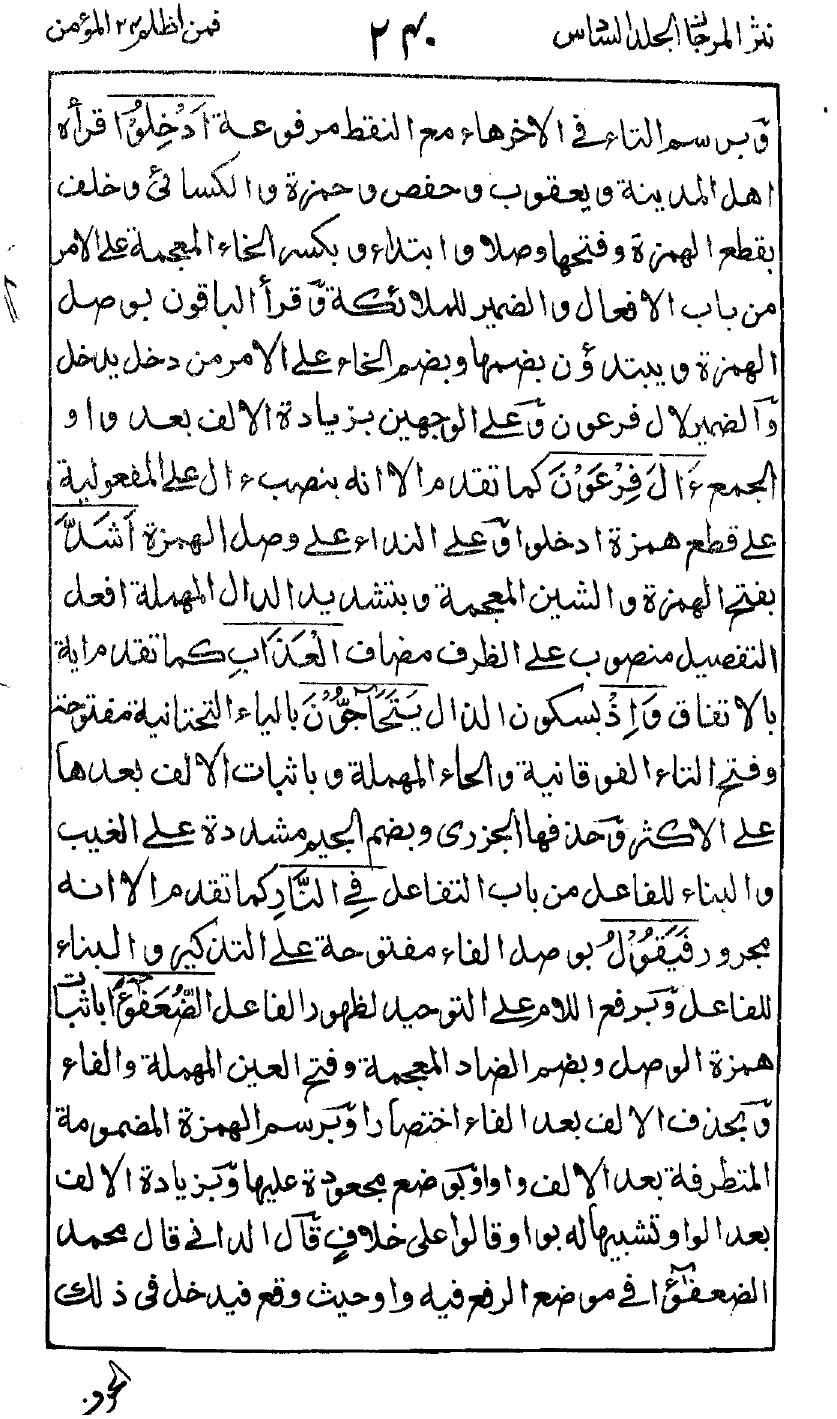 نثر المرجان الجلد السادس ٢٤٠ فمن اظلم ٢٤ المؤمن
وَبرسم التاء فى الاخرهاء مع النقط مرفوعة اَدْخِلُوْا قرأه
اهل المدينة ويعقوب وحفص وحمزة والكسائى وخلف
بقطع الهمزة وفتحها وصلا وابتداء وبكسر الخاء المعجمة على الامر
من باب الافعال والضمير للملائكة وَقرأ الباقون بوصل
الهمزة ويبتدؤن بضمها وبضم الخاء على الامر من دخل يدخل
وَالضمير لال فرعون وَعلى الوجهين بزيادة الالف بعد واو
الجمع ءَالَ فِرْعَوْنَ كما تقدم الا انه بنصب ءال على المفعولية
على قطع همزة ادخلوا وَعلى النداء على وصل الهمزة اَشَدَّ
بفتح الهمزة والشين المعجمة وبتشديد الدال المهملة افعل
التفضيل منصوب على الظرف مضاف الْعَذَابِ كما تقدم اية
بالاتفاق وَاِذْ بسكون الذال يَتَحَاۤجُّوْنَ بالياء التحتانية مفتوحة
وفتح التاء الفوقانية والحاء المهملة وباثبات الالف بعدها
على الاكثر وَحذفها الجزرى وبضم الجيم مشددة على الغيب
والبناء للفاعل من باب التفاعل فِي النَّارِ كما تقدم الا انه
مجرور فَيَقُوْلُ بوصل الفاء مفتوحة على التذكير والبناء
للفاعل وَبرفع اللام على التوحيد لظهور الفاعل الضُّعَفٰۤؤُا باثبات
همزة الوصل وبضم الضاد المعجمة وفتح العين المهملة والفاء
وَبحذف الالف بعد الفاء اختصارا وَبرسم الهمزة المضمومة
المتطرفة بعد الالف واوا وَبوضع مجعودة عليها وَبزيادة الالف
بعد الواو تشبيها له بواو قالوا على خلافٍ قَال الدانى قال محمد
الضعفٰۤؤا فى موضع الرفع فيه واو حيث وقع فيدخل فى ذلك